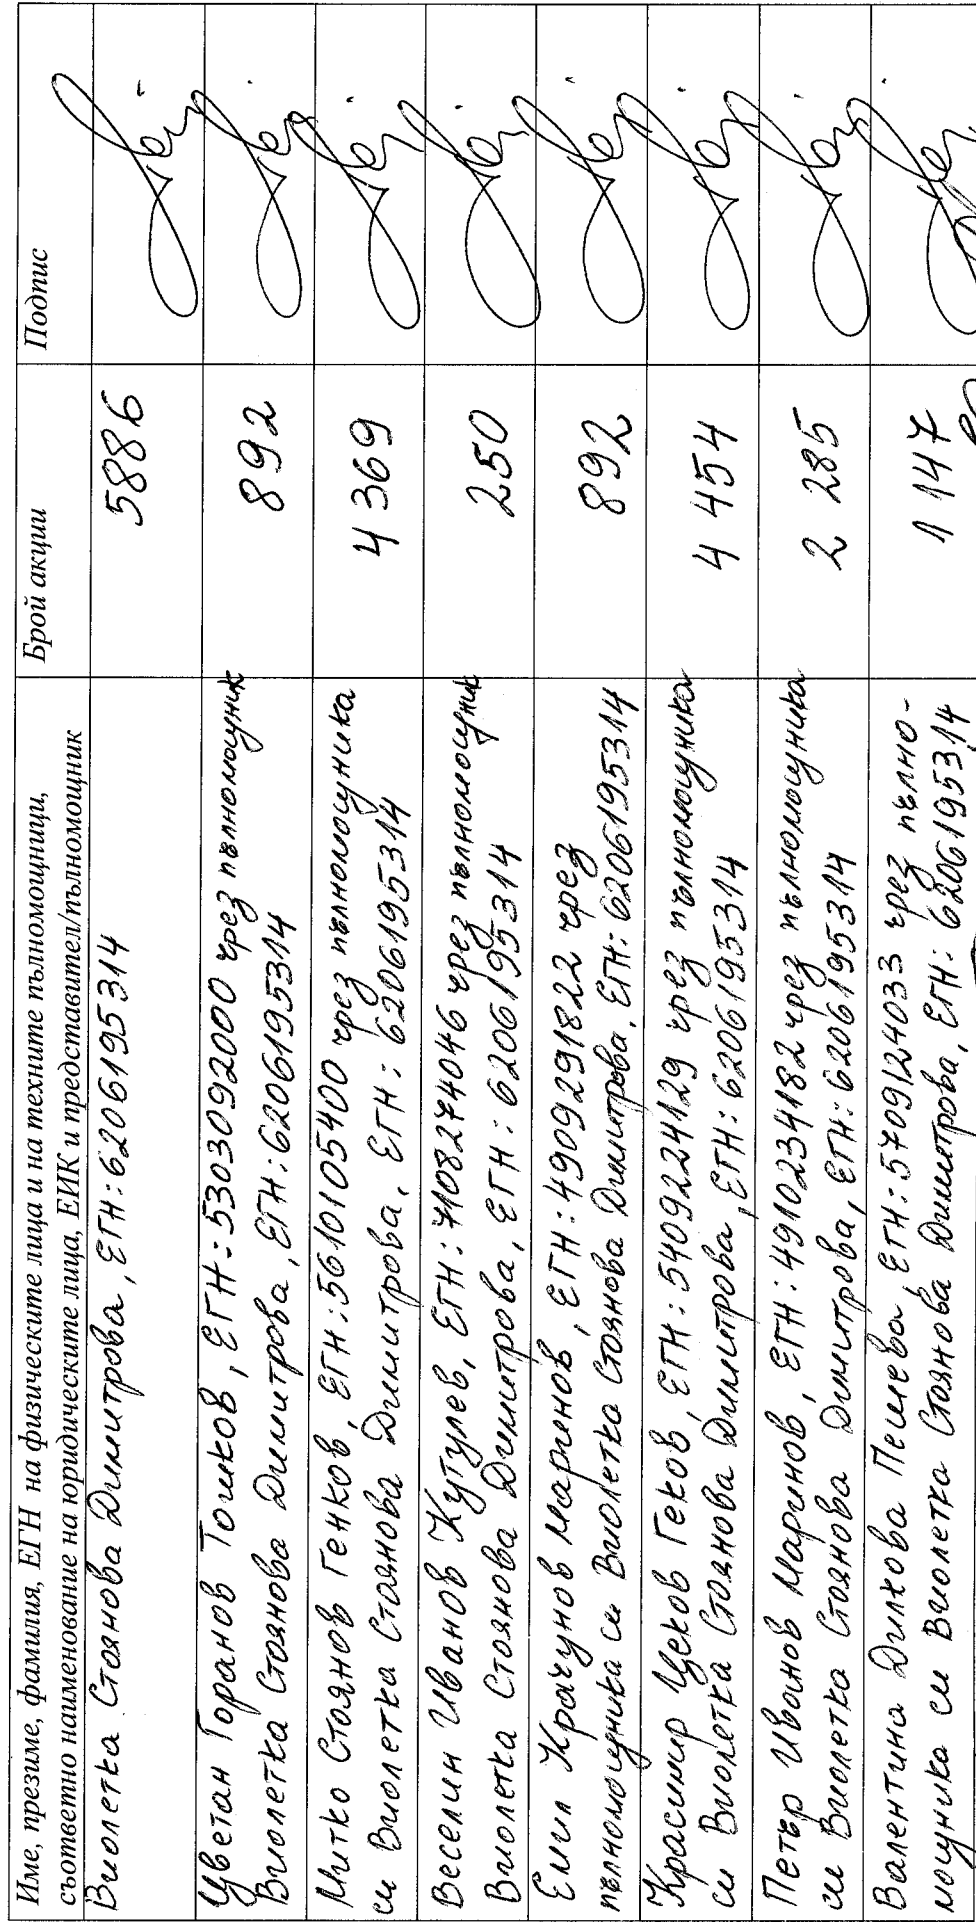 Име, презиме, фамилия, ЕГН на физическите лица и на техните пълномощници,
съответно наименование на юридическите лица, ЕИК и представител/пълномощник
Брой акции
Подпис
Виолетка Стоянова Димитрова, ЕГН: 6206195314
5886
Цветан Горанов Тошков, ЕГН: 5303092000 чрез пълномощник
Виолетка Стоянова Димитрова, ЕГН: 6206195314
892
Митко Стоянов Генков, ЕГН: 5610105400 чрез пълномощника
си Виолетка Стоянова Димитрова, ЕГН: 6206195314
4 369
Веселин Иванов Кутулев, ЕГН: 7108274046 чрез пълномощник
Виолетка Стоянова Димитрова, ЕГН: 6206195314
250
Емил Крачунов Маринов, ЕГН: 4909291822 чрез
пълномощника си Виолетка Стоянова Димитрова, ЕГН: 6206195314
892
Красимир Цеков Геков, ЕГН: 5409224129 чрез пълномощника
си Виолетка Стоянова Димитрова, ЕГН: 6206195314
4 454
Петър Иванов Маринов, ЕГН: 4910234182 чрез пълномощника
си Виолетка Стоянова Димитрова, ЕГН: 6206195314
2 285
Валентина Дилкова Пешева, ЕГН: 5709124033 чрез пълно-
мощника си Виолетка Стоянова Димитрова, ЕГН: 6206195314
1 147